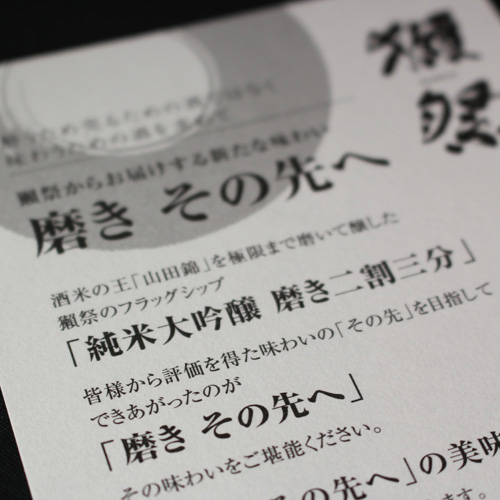 獺祭
酔うため売るための酒ではなく
味わうための酒を求めて
獺祭からお届けする新たな味わい
磨き その先へ
酒米の王「山田錦」を極限まで磨いて醸した
獺祭のフラッグシップ
「純米大吟醸 磨き二割三分」
皆様から評価を得た味わいの「その先」を目指して
できあがったのが
「磨き その先へ」
その味わいをご堪能ください。
その先へ」の美味
ます。